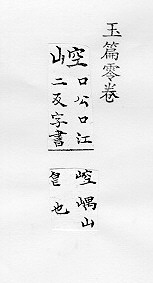 玉篇零卷
崆
口公口江
二反字書
崆嵎山
皃也